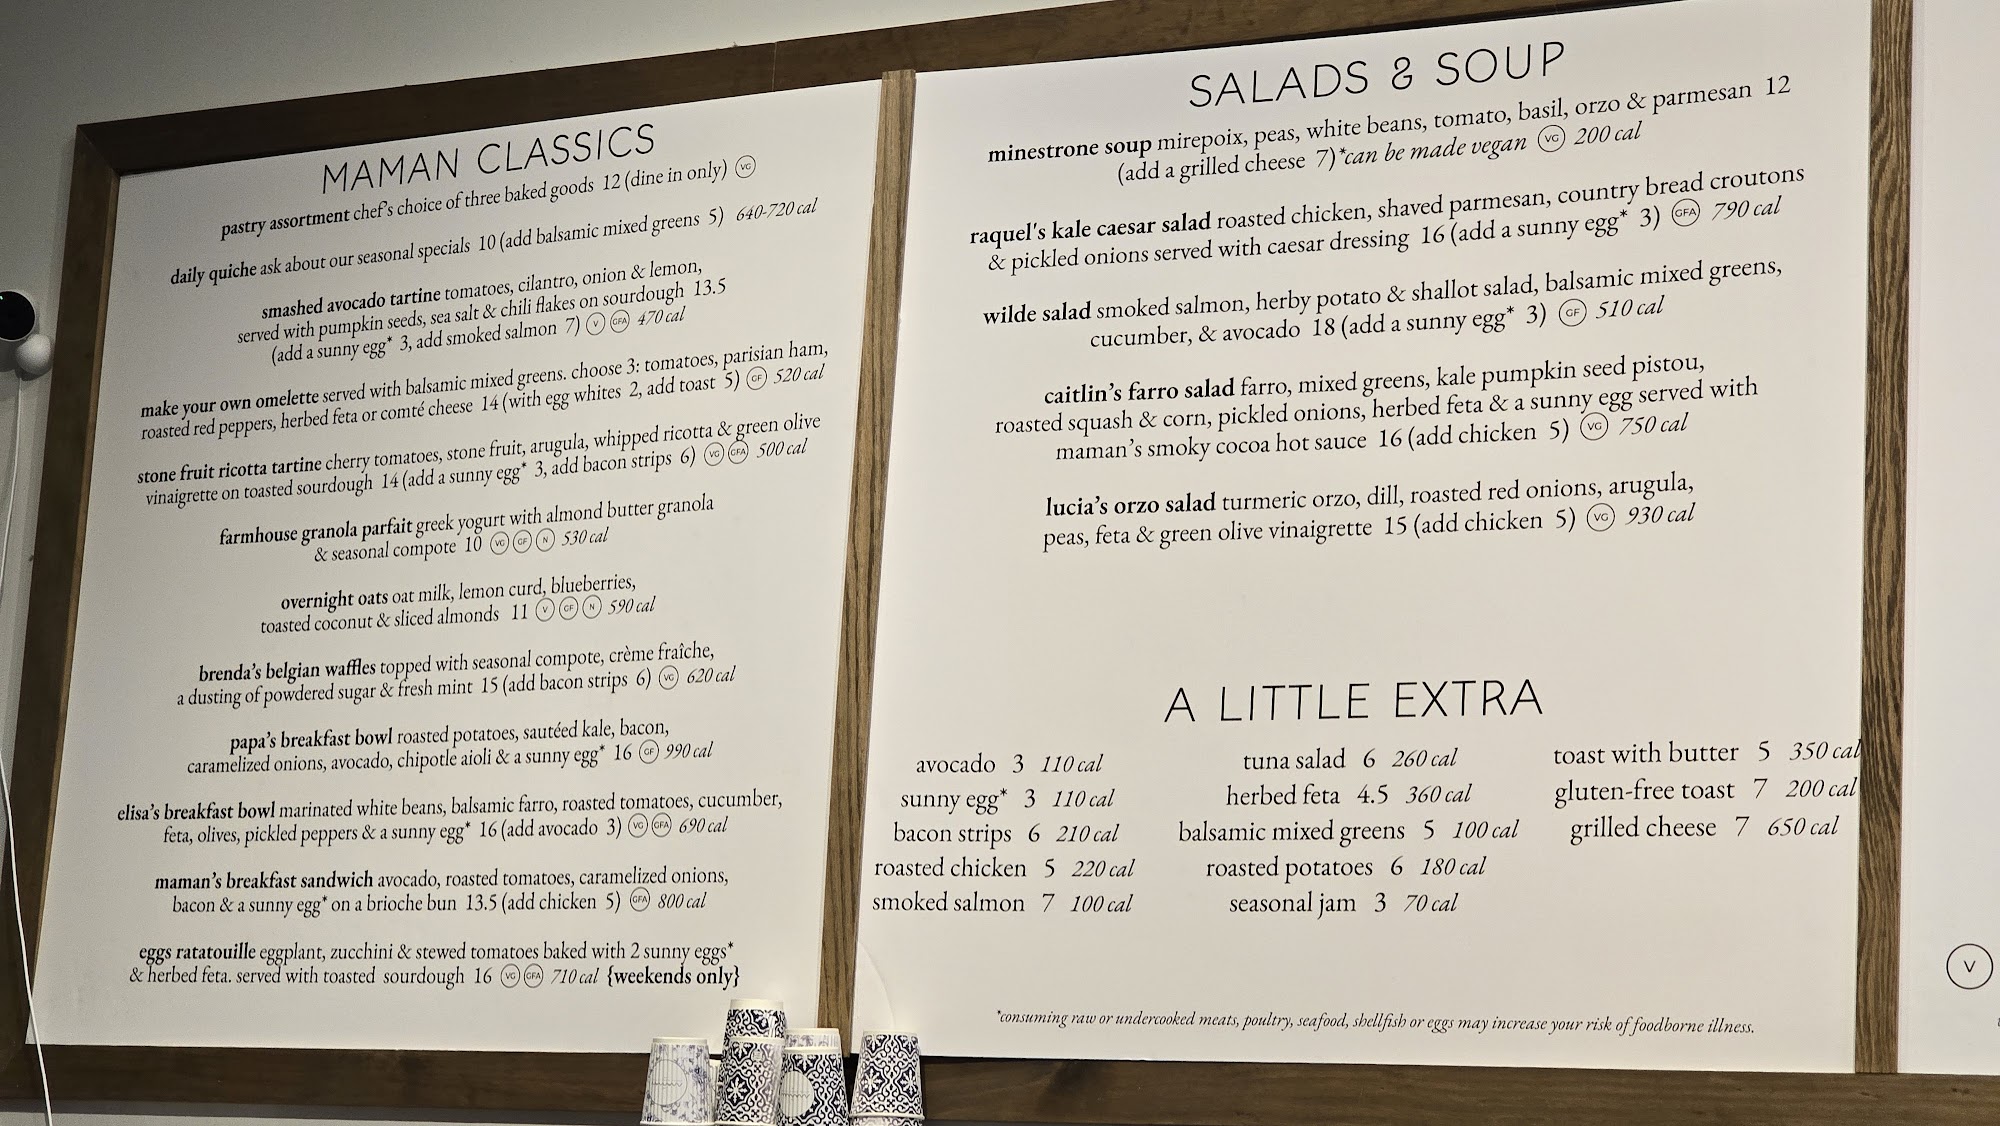 MAMAN CLASSICS
pastry assortment chef's choice of three baked goods 12 (dine in only) VG
daily quiche ask about our seasonal specials 10 (add balsamic mixed greens 5) 640-720 cal
smashed avocado tartine tomatoes, cilantro, onion & lemon,
served with pumpkin seeds, sea salt & chili flakes on sourdough 13.5
(add a sunny egg* 3, add smoked salmon 7) V GFA 470 cal
make your own omelette served with balsamic mixed greens. choose 3: tomatoes, parisian ham,
roasted red peppers, herbed feta or comté cheese 14 (with egg whites 2, add toast 5) GF 520 cal
stone fruit ricotta tartine cherry tomatoes, stone fruit, arugula, whipped ricotta & green olive
vinaigrette on toasted sourdough 14 (add a sunny egg* 3, add bacon strips 6) VG GFA 500 cal
farmhouse granola parfait greek yogurt with almond butter granola
& seasonal compote 10 VG GF N 530 cal
overnight oats oat milk, lemon curd, blueberries,
toasted coconut & sliced almonds 11 V GF N 590 cal
brenda's belgian waffles topped with seasonal compote, crème fraîche,
a dusting of powdered sugar & fresh mint 15 (add bacon strips 6) VG 620 cal
papa's breakfast bowl roasted potatoes, sautéed kale, bacon,
caramelized onions, avocado, chipotle aioli & a sunny egg* 16 GF 990 cal
elisa's breakfast bowl marinated white beans, balsamic farro, roasted tomatoes, cucumber,
feta, olives, pickled peppers & a sunny egg* 16 (add avocado 3) VG GFA 690 cal
maman's breakfast sandwich avocado, roasted tomatoes, caramelized onions,
bacon & a sunny egg* on a brioche bun 13.5 (add chicken 5) GFA 800 cal
eggs ratatouille eggplant, zucchini & stewed tomatoes baked with 2 sunny eggs*
& herbed feta. served with toasted sourdough 16 VG GFA 710 cal {weekends only}
SALADS & SOUP
minestrone soup mirepoix, peas, white beans, tomato, basil, orzo & parmesan 12
(add a grilled cheese 7) *can be made vegan VG 200 cal
raquel's kale caesar salad roasted chicken, shaved parmesan, country bread croutons
& pickled onions served with caesar dressing 16 (add a sunny egg* 3) GFA 790 cal
wilde salad smoked salmon, herby potato & shallot salad, balsamic mixed greens,
cucumber, & avocado 18 (add a sunny egg* 3) GF 510 cal
caitlin's farro salad farro, mixed greens, kale pumpkin seed pistou,
roasted squash & corn, pickled onions, herbed feta & a sunny egg served with
maman's smoky cocoa hot sauce 16 (add chicken 5) VG 750 cal
lucia's orzo salad turmeric orzo, dill, roasted red onions, arugula,
peas, feta & green olive vinaigrette 15 (add chicken 5) VG 930 cal
A LITTLE EXTRA
avocado 3 110 cal
sunny egg* 3 110 cal
bacon strips 6 210 cal
roasted chicken 5 220 cal
smoked salmon 7 100 cal
tuna salad 6 260 cal
herbed feta 4.5 360 cal
balsamic mixed greens 5 100 cal
roasted potatoes 6 180 cal
seasonal jam 3 70 cal
toast with butter 5 350 cal
gluten-free toast 7 200 cal
grilled cheese 7 650 cal
*consuming raw or undercooked meats, poultry, seafood, shellfish or eggs may increase your risk of foodborne illness.
V